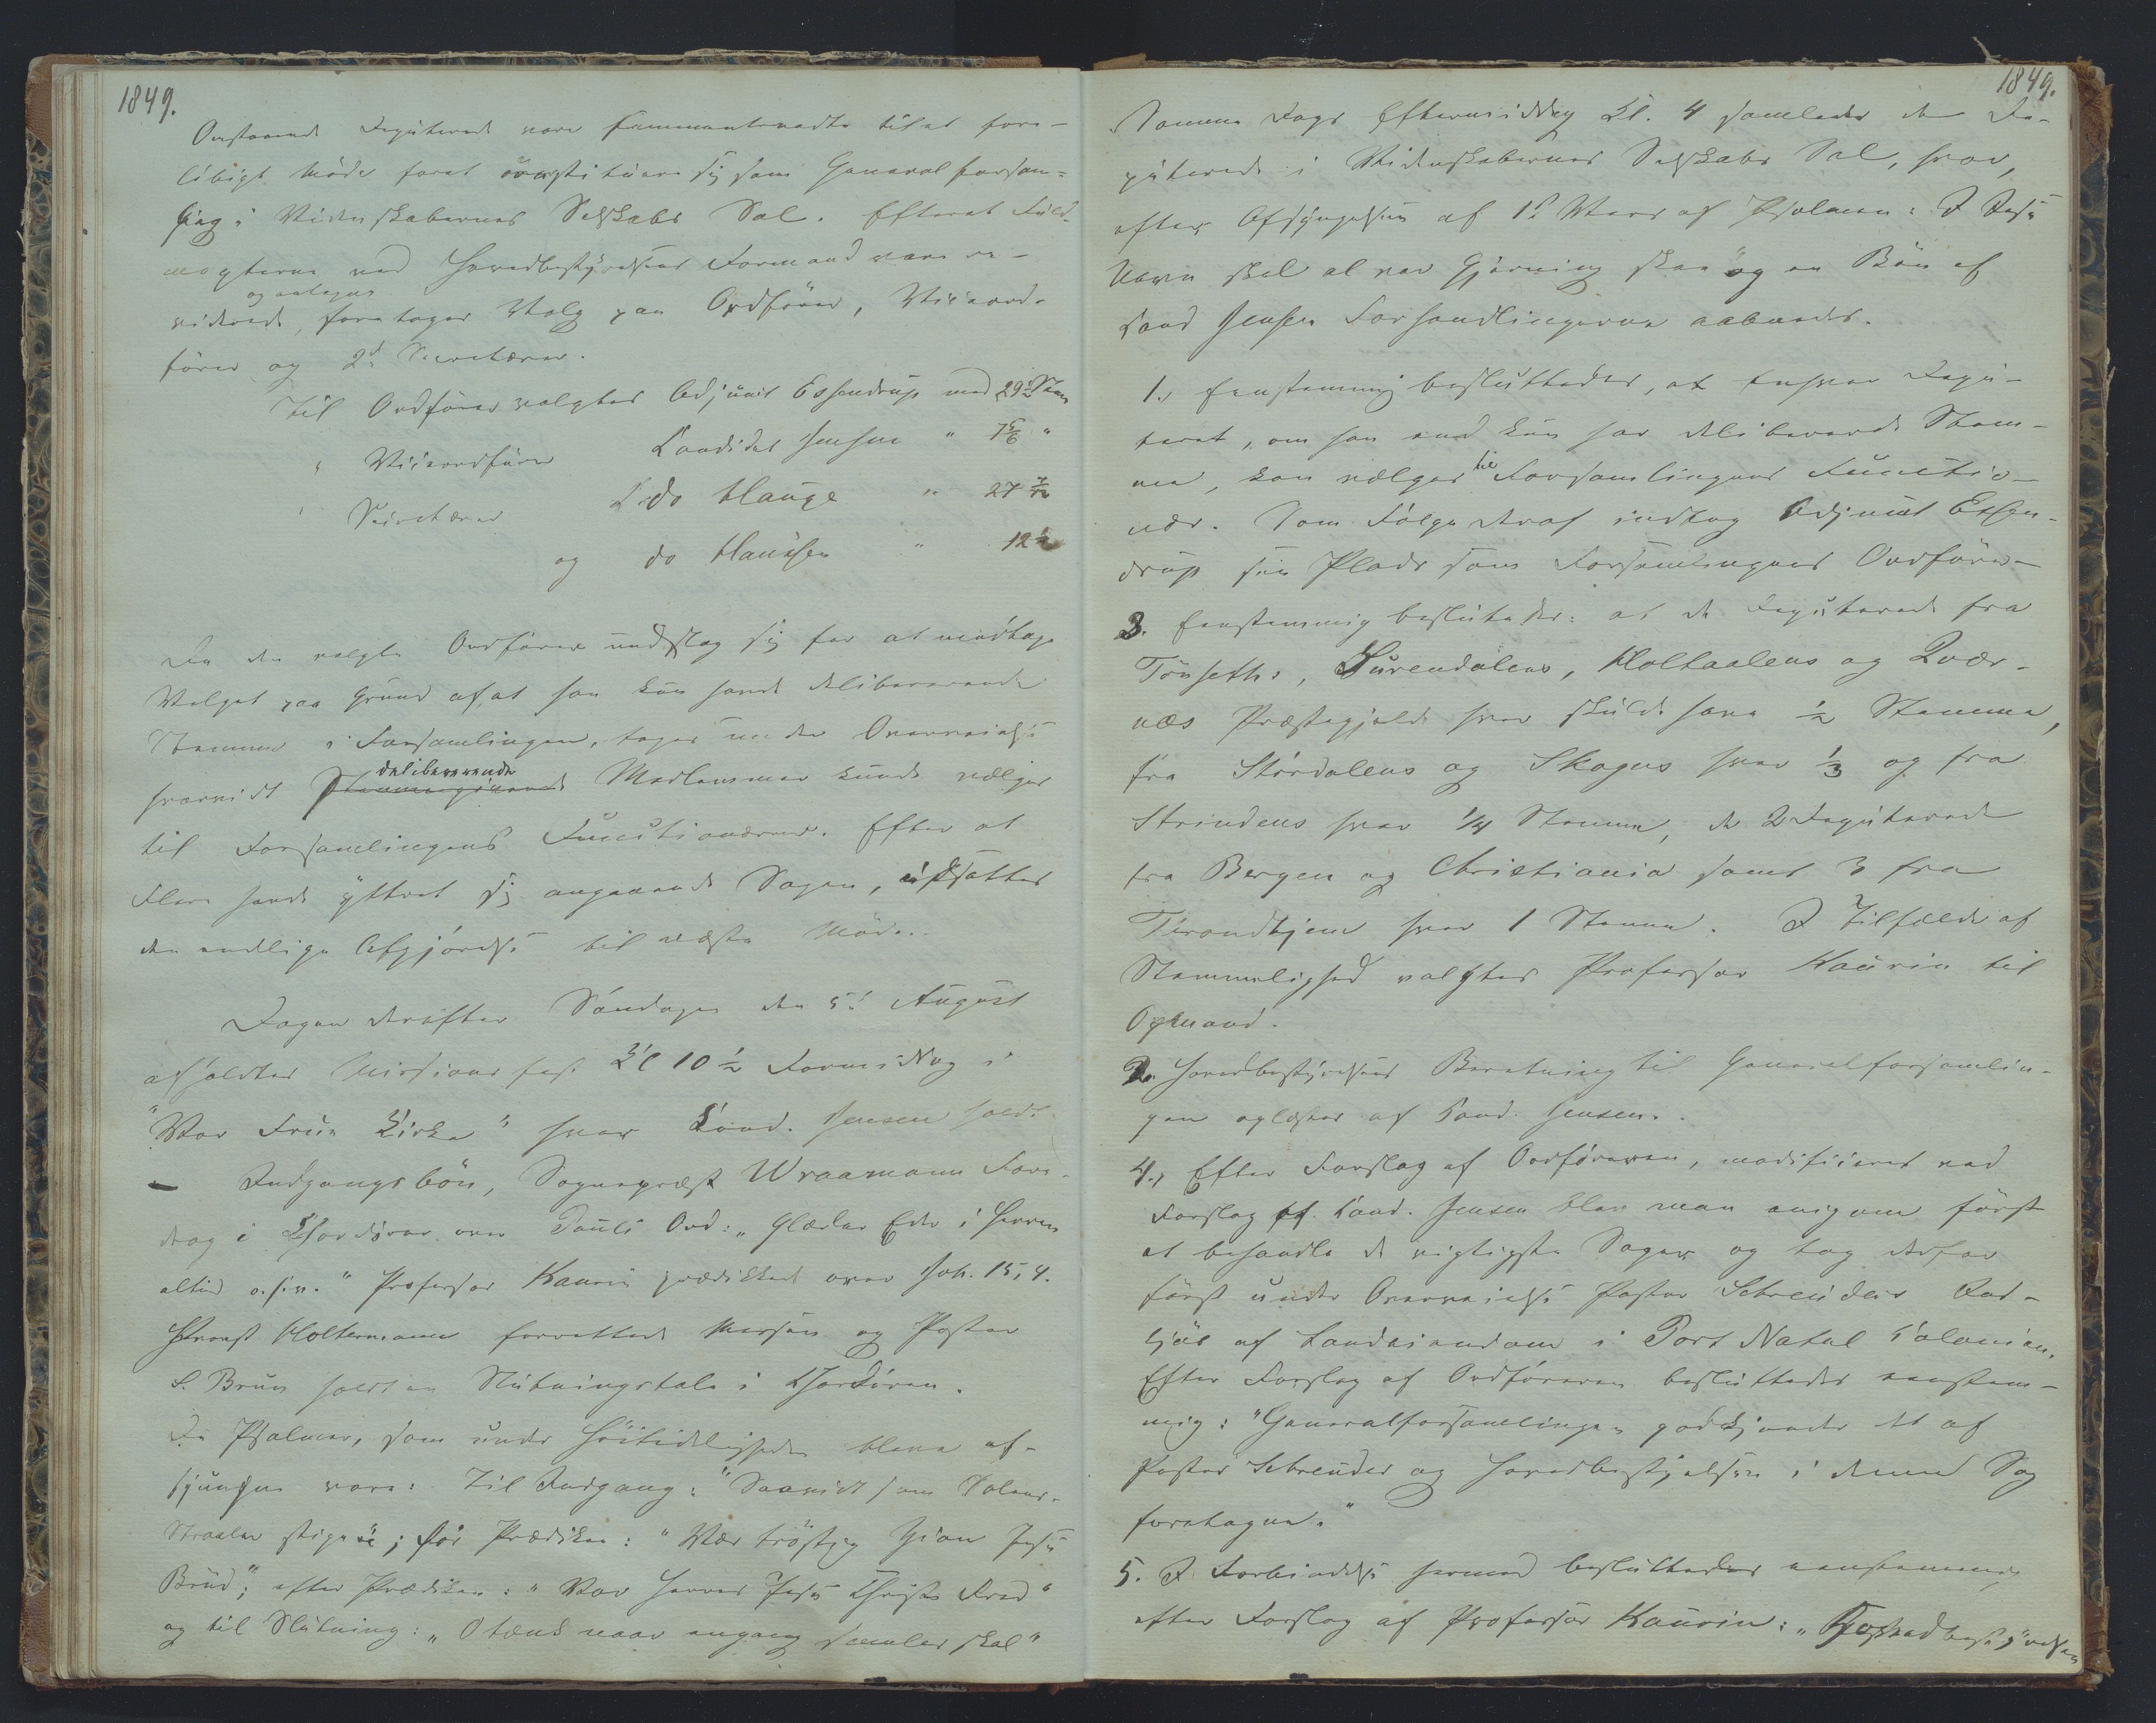 1849.
Ovenstaaende Deputerede vare sammentraadte til et fore-
løbigt Møde forat constituere sig som Generalforsam-
ling i Videnskabernes Selskabs Sal. Efterat Fuld-
magterne ved Hovedbestyrelsens Formand vare re-
viderede og antagne, foretoges Valg paa Ordfører, Viceord-
fører og 2de Secretærer.
Til Ordfører valgtes Adjunct Essendrup med 29 1/2 Stem
" Viceordfører Candidat Jensen " 7 5/6 "
" Secretærer Cd do Hauge " 27 7/12
og do Hanssen " 12 1/2
Da den valgte Ordfører undslog sig for at modtage
Valget paa Grund af, at han kun havde delibererende
Stemme i Forsamlingen, toges under Overveielse
hvorvidt Stemmegivende delibererende Medlemmer kunde vælges
til Forsamlingens Functionærer. Efter at
Flere havde yttret sig angaaende Sagen, udsattes
den endelige Afgjørelse til næste Møde.
Dagen derefter Søndagen den 5te August
afholdtes Missionsfest Kl 10 1/2 Formiddag i
"Vor Frue Kirke" hvor Cand. Jensen holdt
Indgangsbøn, Sognepræst Wraamann Fore-
drag i Chordøren over Pauli Ord: "Glæder Eder i Herren
altid o.s.v." Professor Kaurin prædikede over Joh. 15, 4.
Provst Holtermann forrettede Messen og Pastor
S. Brun holdt en Slutningstale i Chordøren.
De Psalmer, som under Høitideligheden bleve af-
sjungne vare: Til Indgang: "Saavidt som Solens
Straaler stige"; før Prædiken: "Vær trøstig Zion Jesu
Brud"; efter Prædiken: "Vor Herres Jesu Christi Fred"
og til Slutning: "O tænk naar engang samles skal"
1849.
Samme Dags Eftermiddag Kl. 4 samledes de De-
puterede i Videnskabernes Selskabs Sal, hvor,
efter Afsyngelsen af 1ste Vers af Psalmen: I Jesu
Navn skal al vor Gjerning skee og en Bøn af
Cand Jensen Forhandlingerne aabnedes.
1., Eenstemmig besluttedes, at enhver Depu-
teret, om han end kun har delibererende Stem-
me, kan vælges til Forsamlingens Functio-
nær. Som Følge deraf indtog Adjunct Essen-
drup sin Plads som Forsamlingens Ordfører
3. Eenstemmig besluttedes: at de Deputerede fra
Tønseths, Surendalens, Holtaalens og Qvær-
næs Præstegjeld hver skulde have 1/2 Stemme,
fra Størdalens og Skogns hver 1/3 og fra
Strindens hver 1/4 Stemme, de 2 Deputerede
fra Bergen og Christiania samt 3 fra
Throndhjem hver 1 Stemme. I Tilfælde af
Stemmelighed valgtes Professor Kaurin til
Opmand.
2. Hovedbestyrelsens Beretning til Generalforsamlin-
gen oplæstes af Cand. Jensen.
4., Efter Forslag af Ordføreren, modificeret ved
Forslag af Cand. Jensen blev man enig om først
at behandle de vigtigste Sager og tog derfor
først under Overveielse Pastor Schreuders Ind-
kjøb af Landeiendom i Port Natal Colonien.
Efter Forslag af Ordføreren besluttedes eenstem-
mig: "Generalforsamlingen godkjender det af
Pastor Schreuder og Hovedbestyrelsen i denne Sag
foretagne."
5. I Forbindelse hermed besluttedes eenstemmig
efter Forslag af Professor Kaurin: "Hovedbestyrelsen